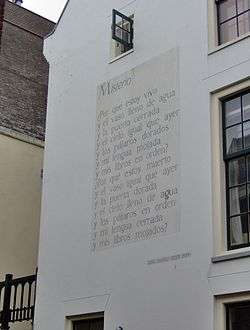 Misterio
Por qué estoy vivo
y el vaso lleno de agua
y la puerta cerrada
y el cielo igual que ayer
y los pájaros dorados
y mi lengua mojada
y mis libros en orden?
Por qué estoy muerto
y el vaso igual que ayer
y la puerta dorada
y el cielo lleno de agua
y los pájaros en orden
y mi lengua cerrada
y mis libros mojados?